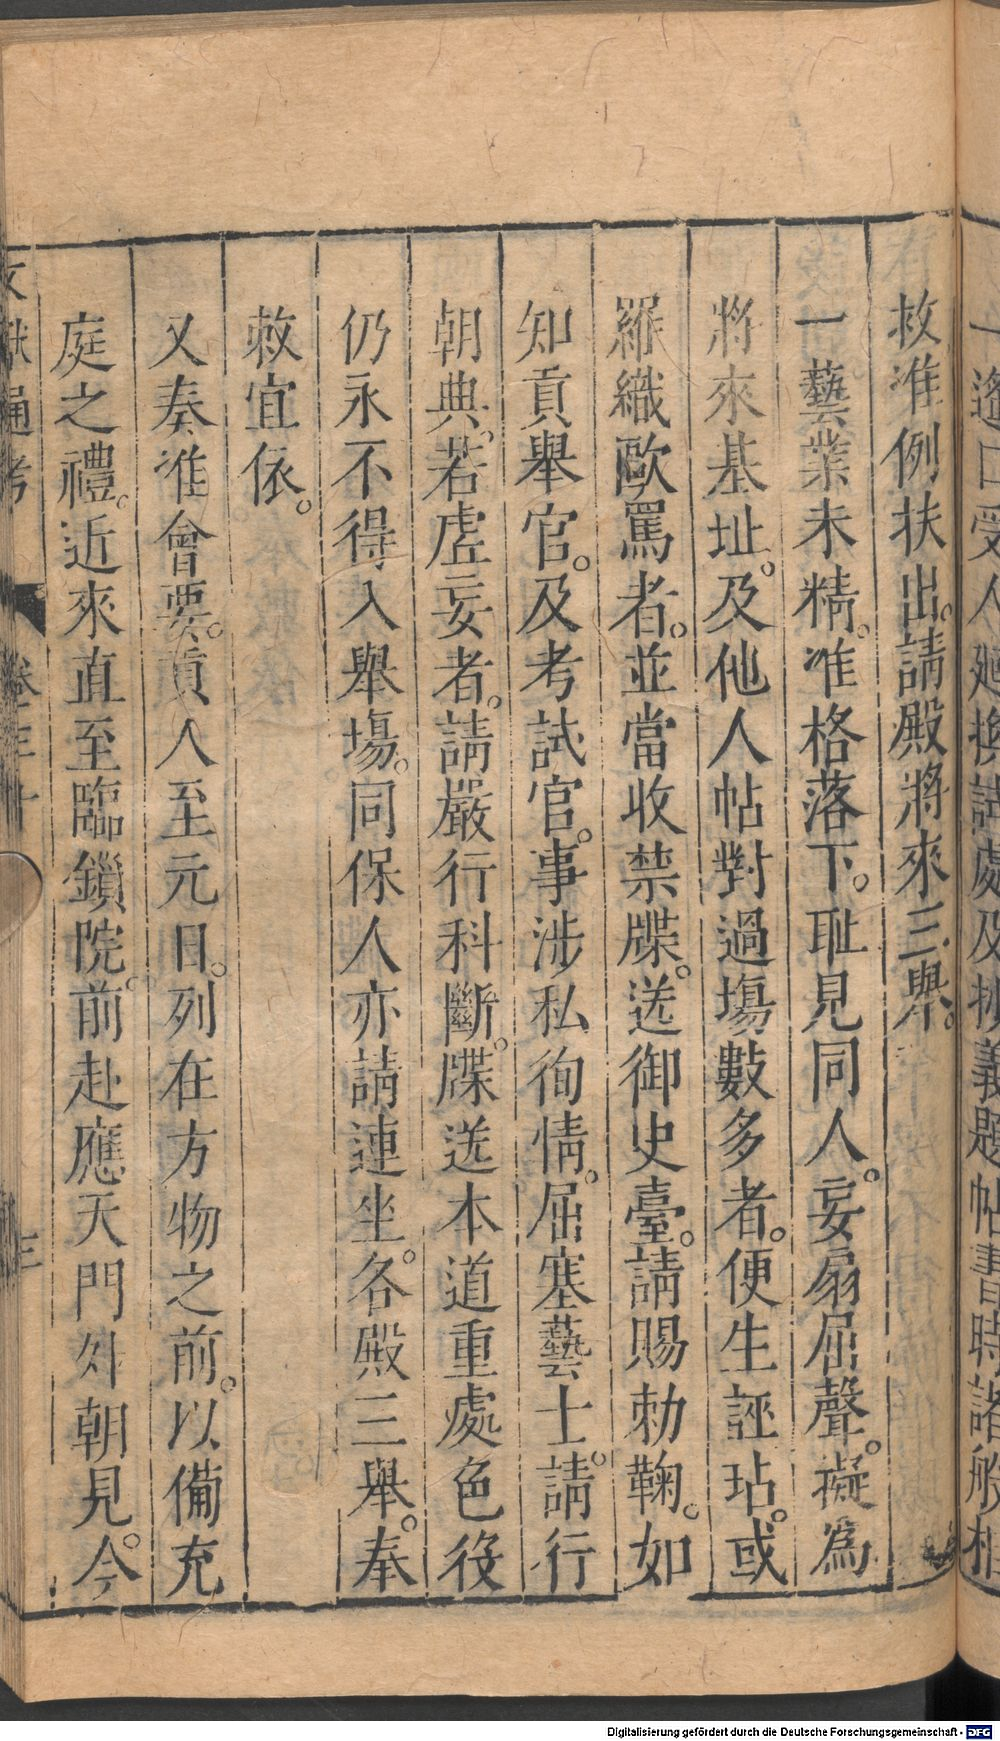 一遙口受人廻換試處及抄義題帖書時諸般相
救准例扶出。請殿將來三舉。
一藝業未精。准格落下。耻見同人。妄扇屈聲。擬為
將來基址。及他人帖對過場數多者。便生誣玷。或
羅織歐罵者。並當收禁牒。送御史臺。請賜勑鞠。如
知貢舉官。及考試官。事涉私徇情。屈塞藝士。請行
朝典。若虛妄者。請嚴行科斷。牒送本道重處色役
仍永不得入舉場。同保人亦請連坐。各殿三舉。奉
敕宜依。
又奏准會要。貢人至元日。列在方物之前。以備充
庭之禮。近來直至臨鎖院。前赴應天門外朝見。今
文獻通考 卷三十 三
Digitalisierung gefördert durch die Deutsche Forschungsgemeinschaft - DFG